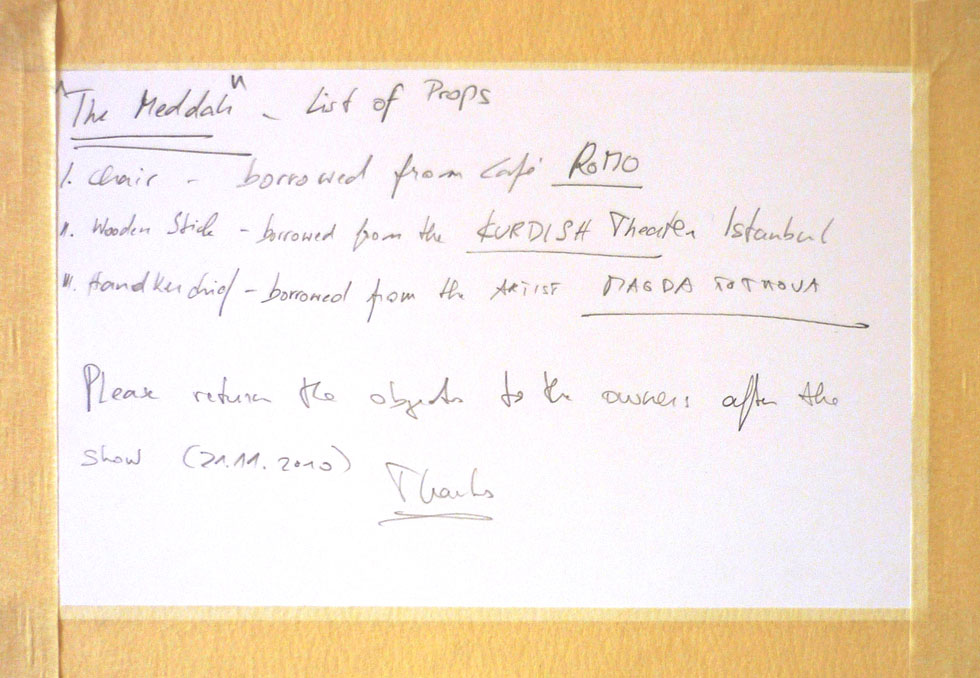 "The Meddah" - List of Props
I. chair - borrowed from Café ROMO
II. Wooden Stick - borrowed from the KURDISH Theater Istanbul
III. Handkerchief - borrowed from the ARTIST MAGDA TOTHOVA
Please return the objects to the owners after the
show (21.11.2010)
Thanks